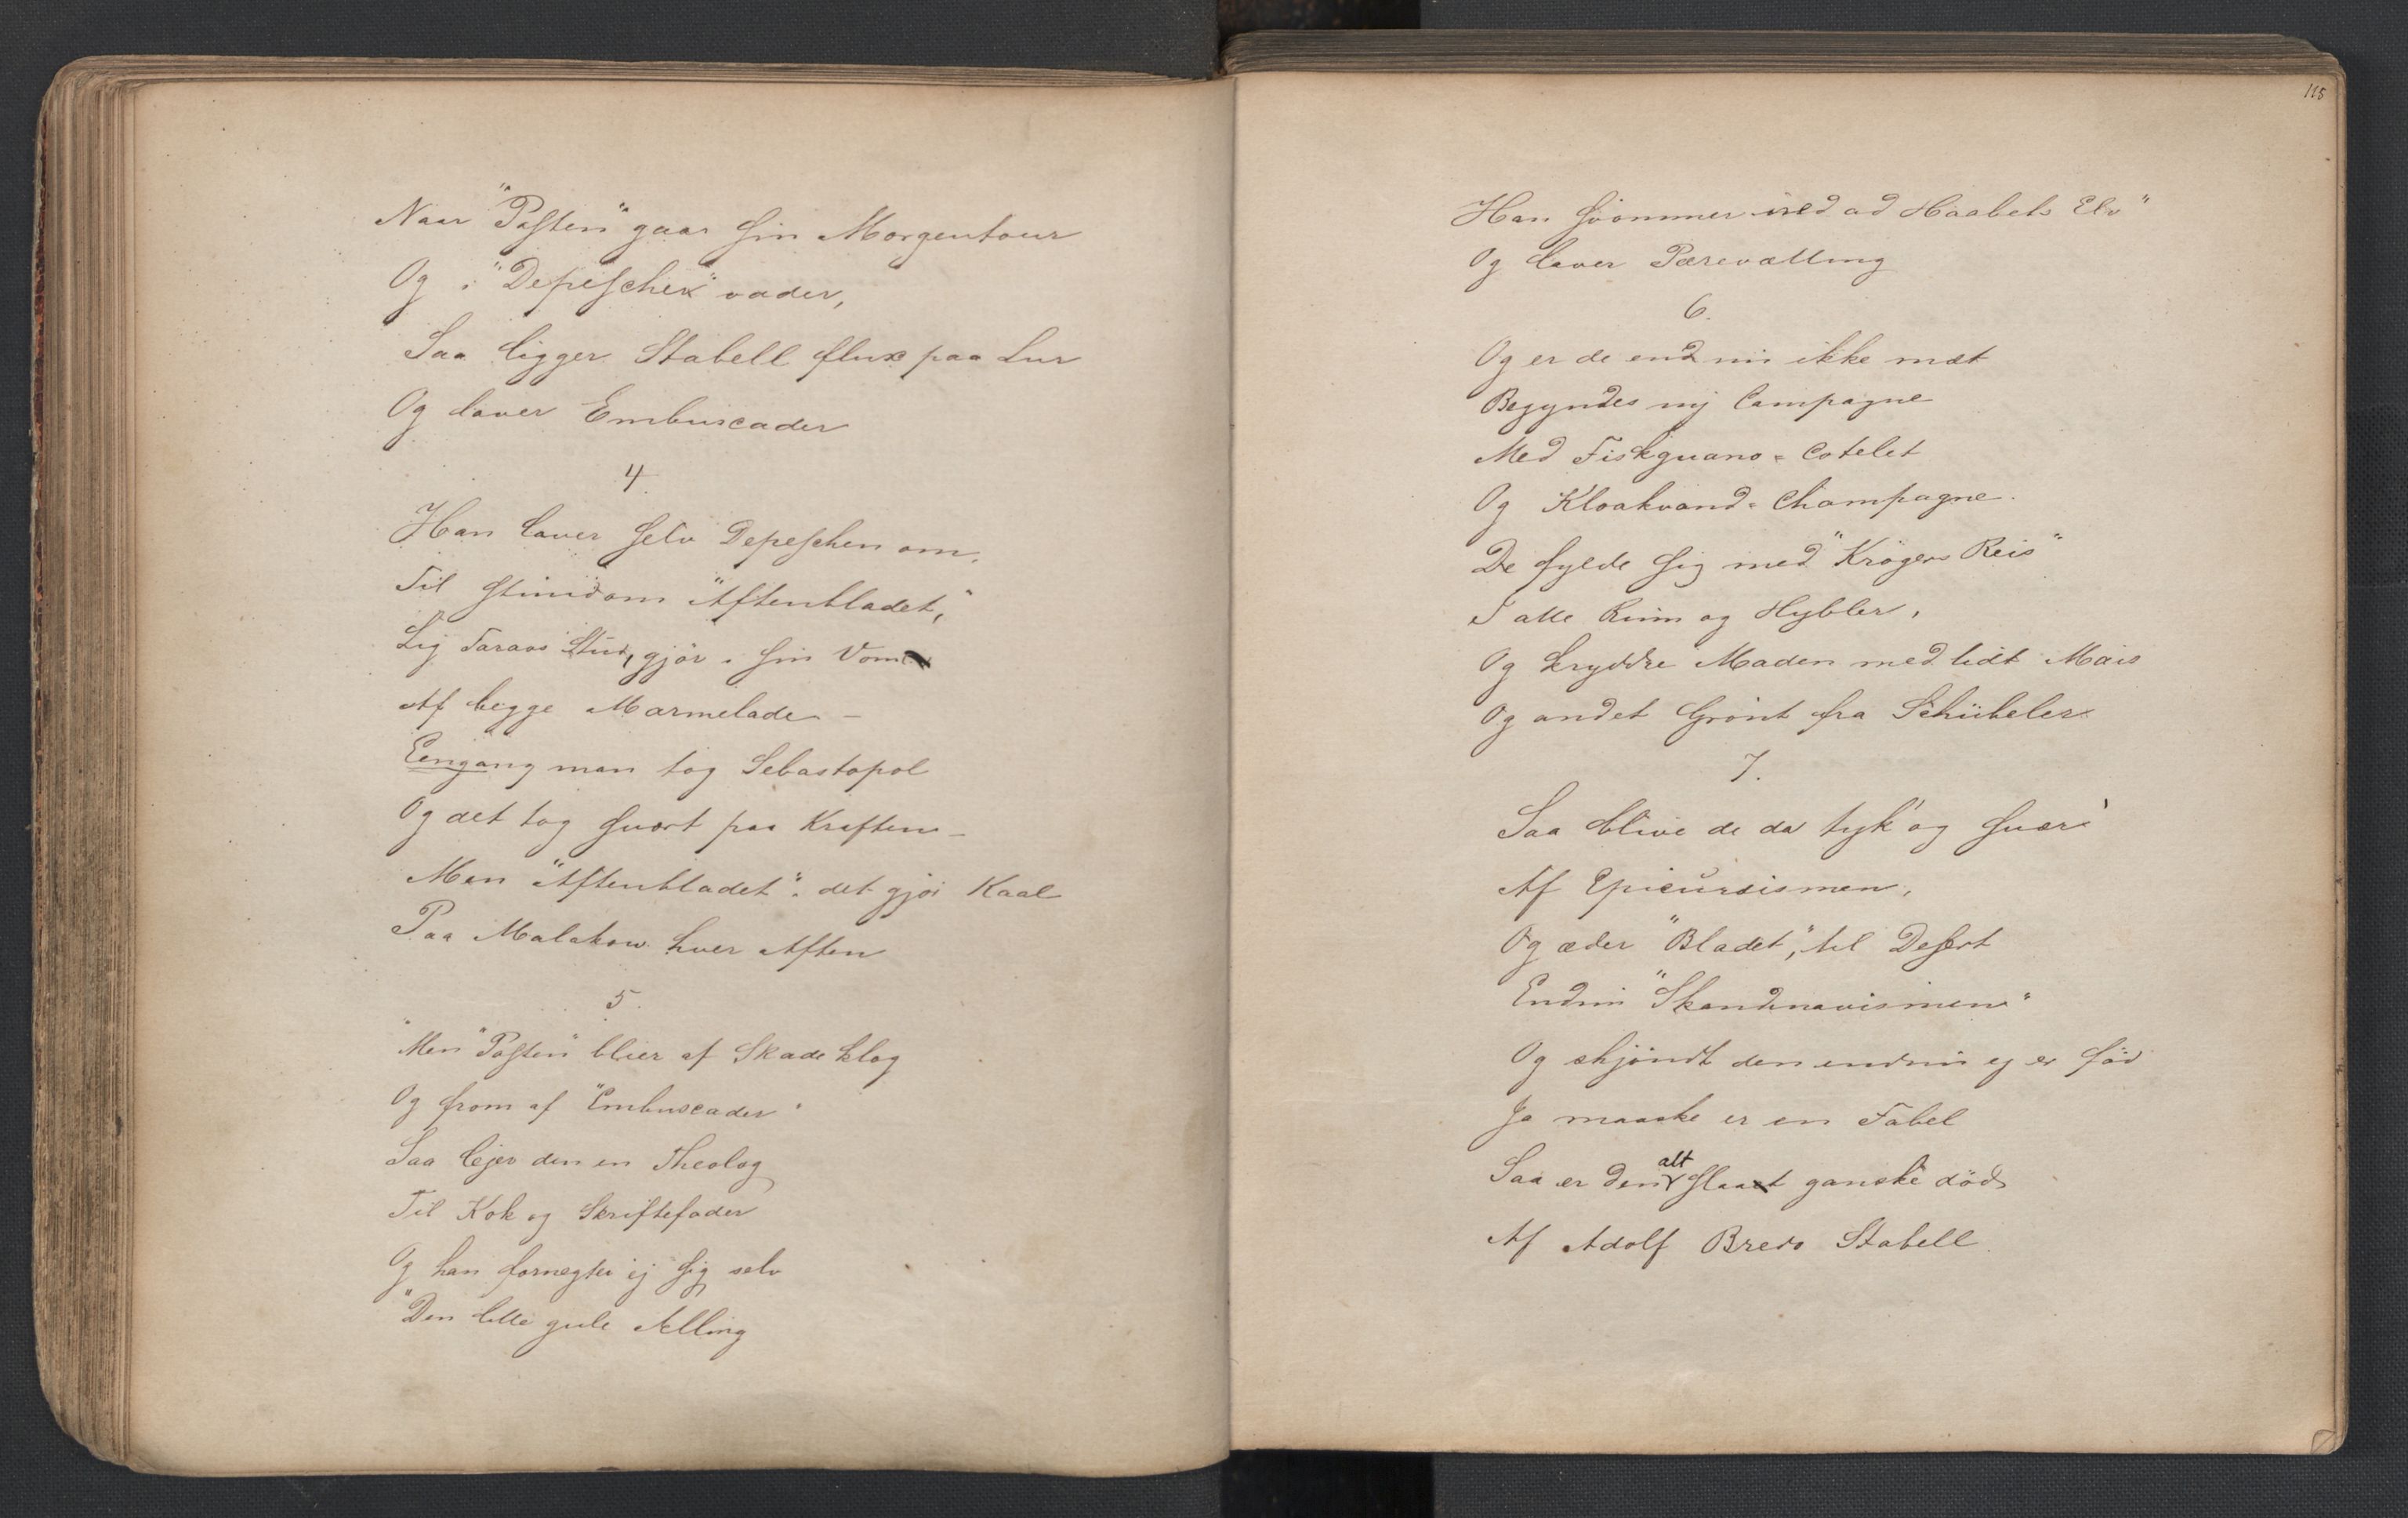 Naar "Posten" gaar sin Morgentour
Og i "Depescher" vader,
Saa ligger Stabell flux paa Lur
Og laver Embuscader
4.
Han laver selv Depeschen om,
Til stundom "Aftenbladet,"
Lig Faraos Stud, gjör i sin Vom
Af begge Marmelade –
Eengang man tog Sebastopol
Og det tog svært paa Kraften –
Men "Aftenbladet": det gjör Kaal
Paa Malakow hver Aften
5.
"Men "Posten" blier af Skade klog
Og from af "Embuscader"
Saa lejer den en Theolog
Til Kok og Skriftefader
Og han fornegter ej sig selv
"Den lille gule Ælling
115
Han svömmer ned ad Haabets Elv"
Og laver Pærevælling
6.
Og er de end nu ikke mæt
Begyndes ny Campagne
Med Fiskguano-Cotelet
Og Kloakvand-Champagne.
De fylde sig med "Krögers Reis"
I alle Rum og Hybler,
Og kryddre Maden med lidt Mais
Og andet Grönt fra Schübeler
7.
Saa blive de da tyk' og svær'
Af Epicuræismen,
Og æder "Bladet," til Desert
Endnu "Skandinavismen"
Og skjöndt den endnu ej er föd
Ja maaske er en Fabel
Saa er den alt slaaet ganske död
Af Adolf Bredo Stabell